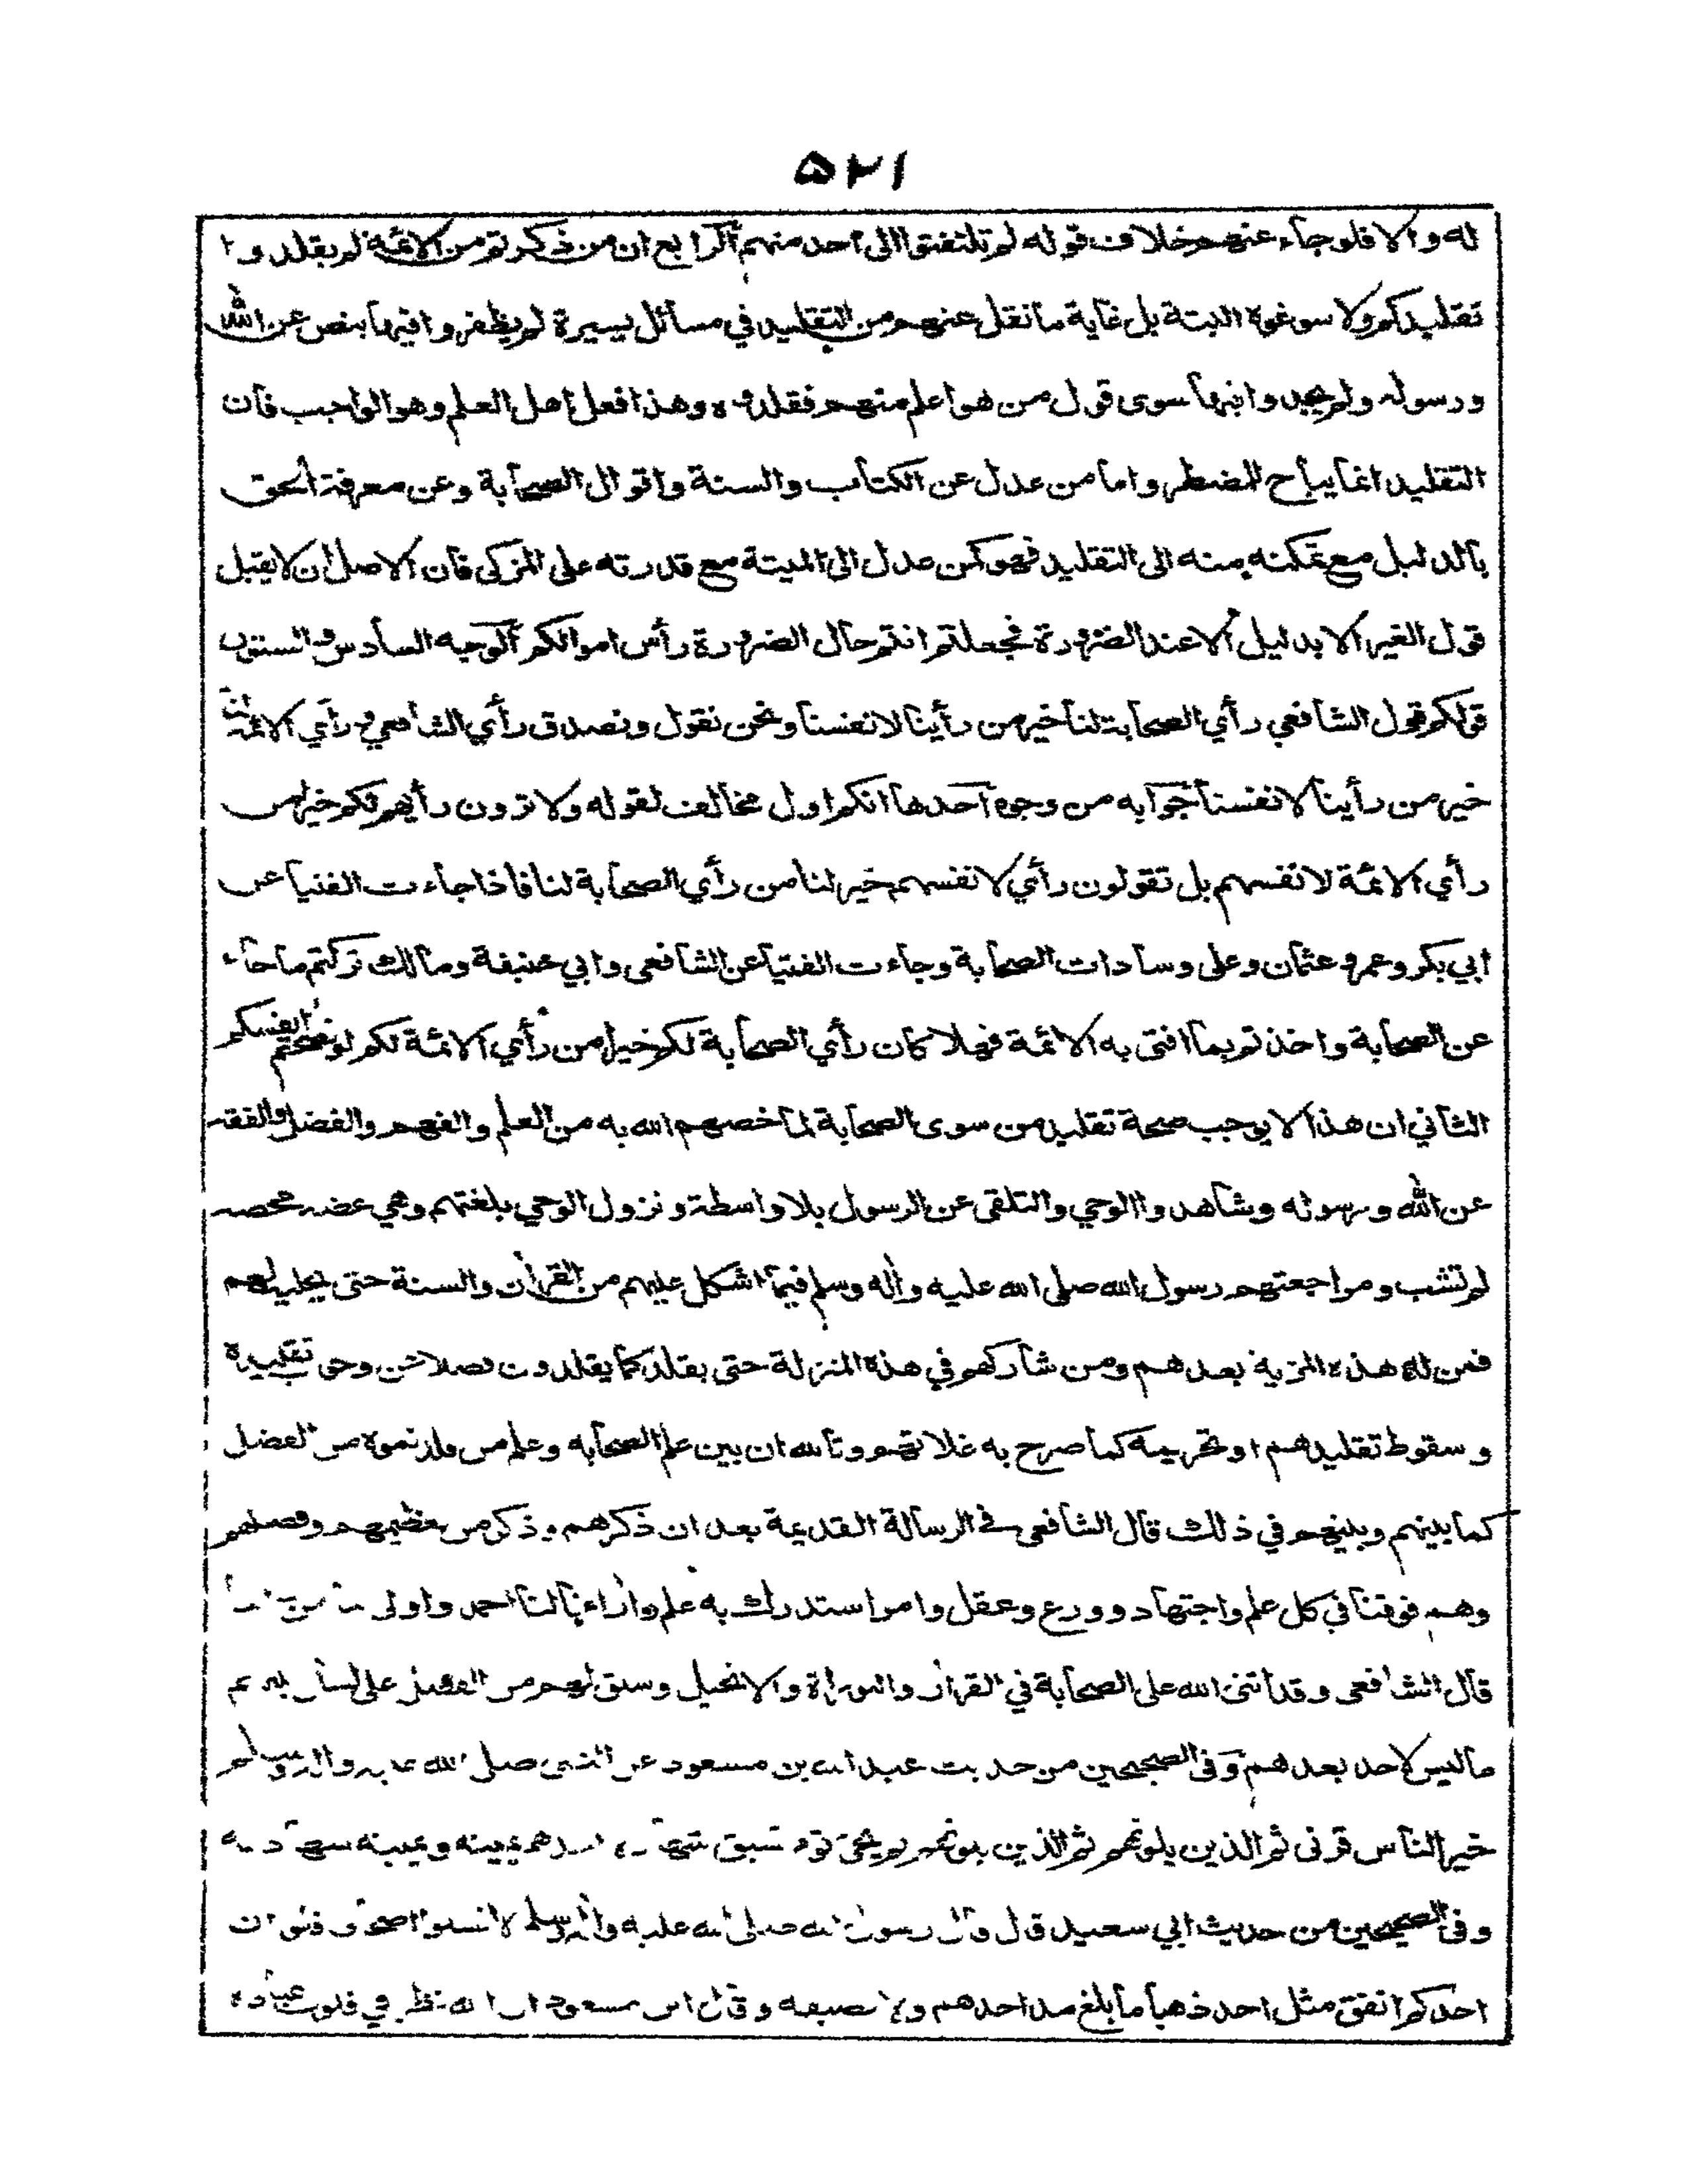 ٥٢١
له والا فلو جاء عنهم خلاف قوله لم تلتفتوا الى احد منهم الرابع ان من ذكرتم من الائمة لم يقلدوا
تقليدكم ولا سوغوه البتة بل غاية ما نقل عنهم من التقليد في مسائل يسيرة لم يظفروا فيها بنص عن الله
ورسوله ولم يجدوا فيها سوى قول من هو اعلم منهم فقلدوه وهذا فعل اهل العلم وهو الواجب فان
التقليد انما يباح للمضطر واما من عدل عن الكتاب والسنة واقوال الصحابة وعن معرفة الحق
بالدليل مع تمكنه منه الى التقليد فهو كمن عدل الى الميتة مع قدرته على المزكى فان الاصل ان لا يقبل
قول الغير الا بدليل الا عند الضرورة فجعلتم انتم حال الضرورة رأس اموالكم الوجه السادس والستون
قولكم قول الشافعي رأي الصحابة لنا خير من رأينا لانفسنا ونحن نقول ونصدق رأي الشافعي ورأي الائمة لنا
خير من رأينا لانفسنا جوابه من وجوه احدها انكم اول مخالف لقوله ولا ترون رأيهم لكم خيرا من
رأي الائمة لانفسهم بل تقولون رأي لانفسهم خير لنا من رأي الصحابة لنا فاذا جاءت الفتيا عن
ابي بكر وعمر وعثمان وعلى وسادات الصحابة وجاءت الفتيا عن الشافعى وابي حنيفة ومالك تركتم ما جاء
عن الصحابة واخذتم بما افتى به الائمة فهلا كان رأي الصحابة لكم خيرا من رأي الائمة لكم لو نصحتم انفسكم
الثاني ان هذا لا يوجب صحة تقليد من سوى الصحابة لما خصهم الله به من العلم والفهم والفضل والفقه
عن الله ورسوله وشاهدوا الوحي والتلقى عن الرسول بلا واسطة ونزول الوحي بلغتهم وهي غضه محضه
لم تشب ومراجعتهم رسول الله صلى الله عليه واله وسلم فيما اشكل عليهم من القران والسنة حتى يجليه لهم
فمن له هذه المزية بعدهم ومن شاركهم في هذه المنزلة حتى يقلد كما يقلدون فصلا عن وجوب تقليده
وسقوط تقليدهم او تحريمه كما صرح به غلاتهم وتالله ان بين علم الصحابه وعلم من قلدتموه من الفضل
كما بينهم وبينهم في ذلك قال الشافعى في الرسالة القديمة بعد ان ذكرهم وذكر من تعظيمهم وفضلهم
وهم فوقنا في كل علم واجتهاد وورع وعقل وامر استدرك به علم واراءهم لنا احمد واولى
قال الشافعى وقد اثنى الله على الصحابة في القران والتوراة والانجيل وسبق لهم من الفضل على لسان نبيهم
ما ليس لاحد بعدهم وفى الصحيحين من حديث عبد الله بن مسعود عن النبى صلى الله عليه واله وسلم
خير الناس قرنى ثم الذين يلونهم ثم الذين يلونهم ثم يجئ قوم تسبق شهادة احدهم يمينه ويمينه شهادته
وفى الصحيحين من حديث ابي سعيد قال قال رسول الله صلى الله عليه واله وسلم لا تسبوا اصحابي فلو ان
احدكم انفق مثل احد ذهبا ما بلغ مد احدهم ولا نصيفه وقال ابن مسعود ان الله نظر في قلوب عباده